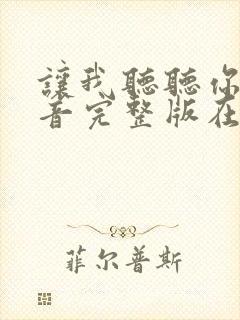 讓我聽聽你
音完整版在
菲尔普斯